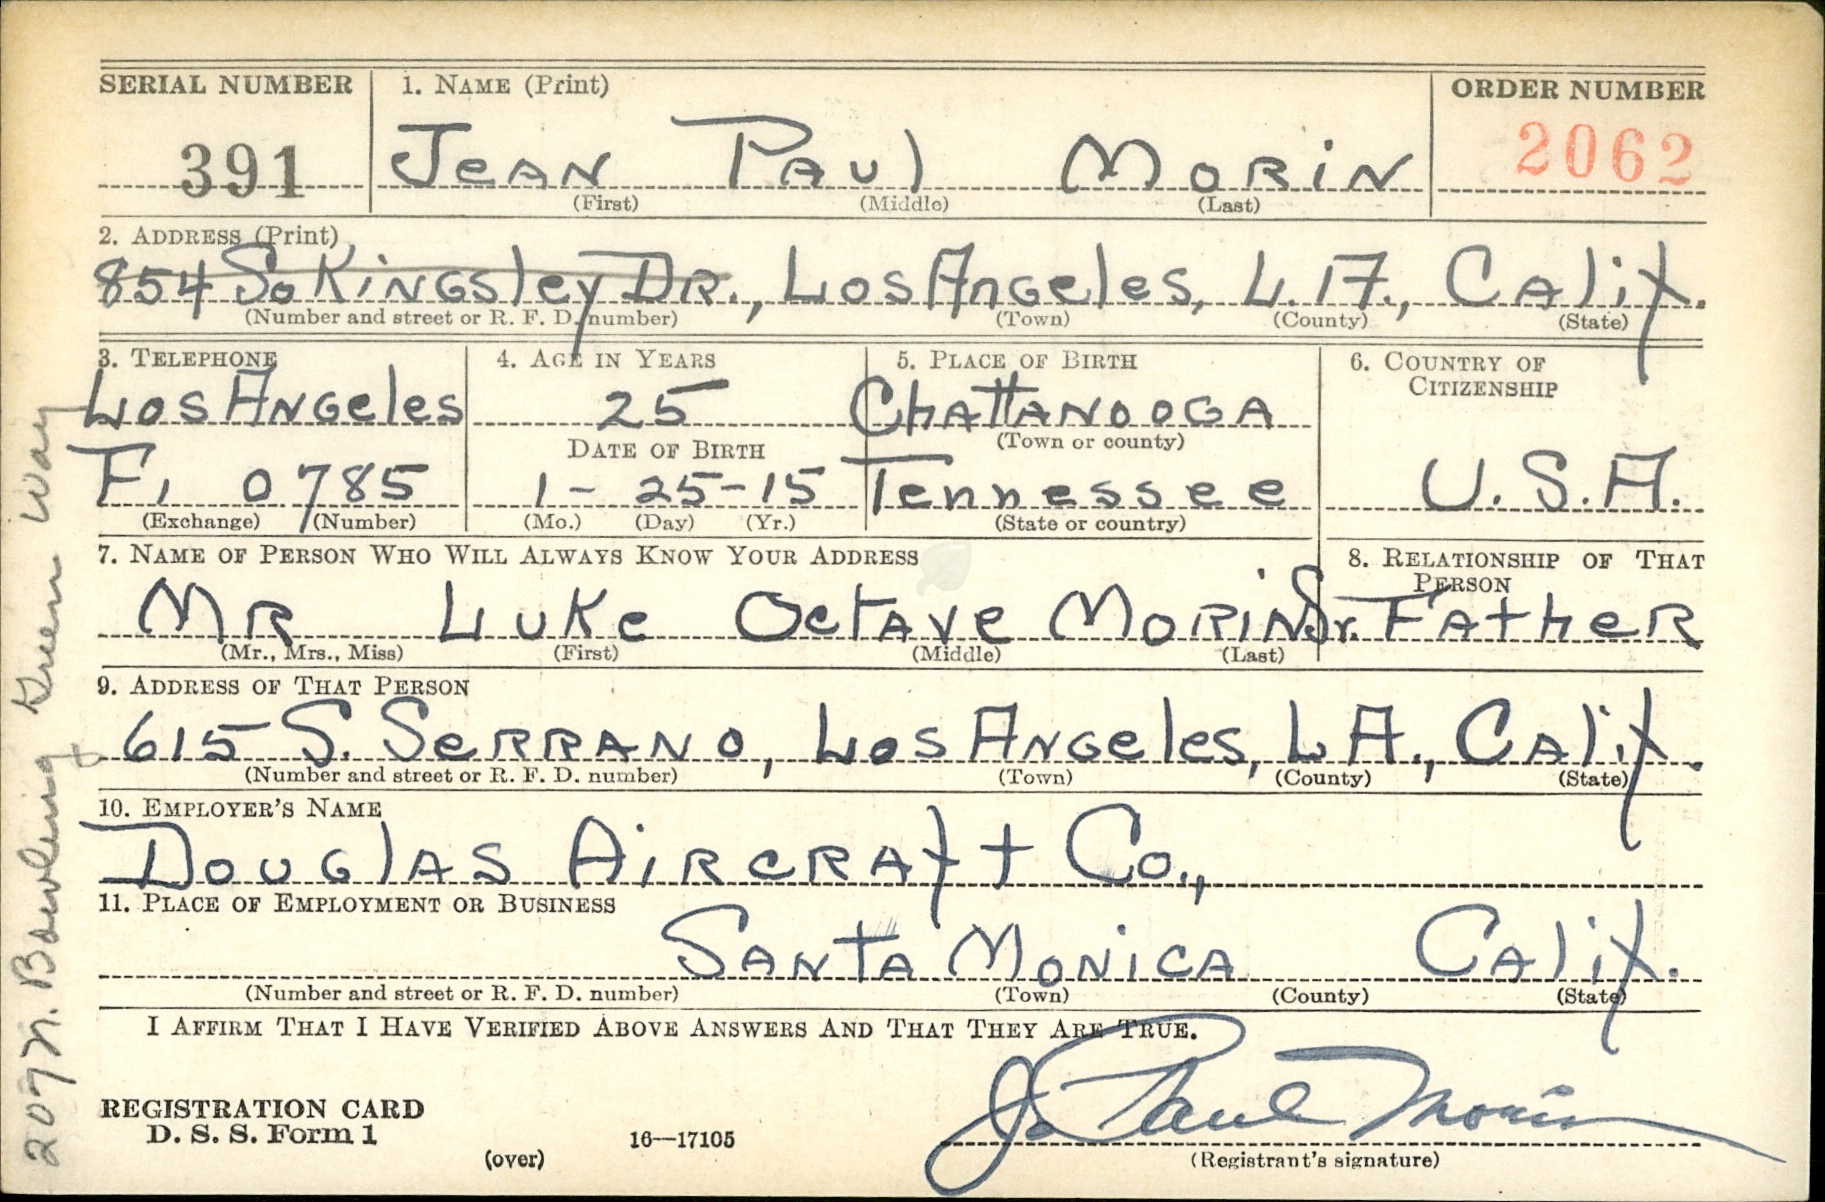 SERIAL NUMBER 1. NAME (Print) ORDER NUMBER
391 JEAN PAUL MORIN 2062
(First) (Middle) (Last)
2. ADDRESS (Print)
854 So KINGSley DR., Los Angeles, L.A., Calif.
(Number and street or R. F. D. number) (Town) (County) (State)
3. TELEPHONE 4. AGE IN YEARS 5. PLACE OF BIRTH 6. COUNTRY OF CITIZENSHIP
Los Angeles 25 Chattanooga
DATE OF BIRTH (Town or county)
Fi 0785 1-25-15 Tennessee U.S.A.
(Exchange) (Number) (Mo.) (Day) (Yr.) (State or country)
7. NAME OF PERSON WHO WILL ALWAYS KNOW YOUR ADDRESS 8. RELATIONSHIP OF THAT PERSON
MR Luke Octave Morin Sr. Father
(Mr., Mrs., Miss) (First) (Middle) (Last)
9. ADDRESS OF THAT PERSON
615 S. SERRANO, Los Angeles, LA., Calif.
(Number and street or R. F. D. number) (Town) (County) (State)
10. EMPLOYER'S NAME
Douglas Aircraft Co.,
11. PLACE OF EMPLOYMENT OR BUSINESS
Santa Monica Calif.
(Number and street or R. F. D. number) (Town) (County) (State)
I AFFIRM THAT I HAVE VERIFIED ABOVE ANSWERS AND THAT THEY ARE TRUE.
REGISTRATION CARD
D. S. S. Form 1 16—17105 J. Paul Morin
(over) (Registrant's signature)
207 N. Bowling Green Way